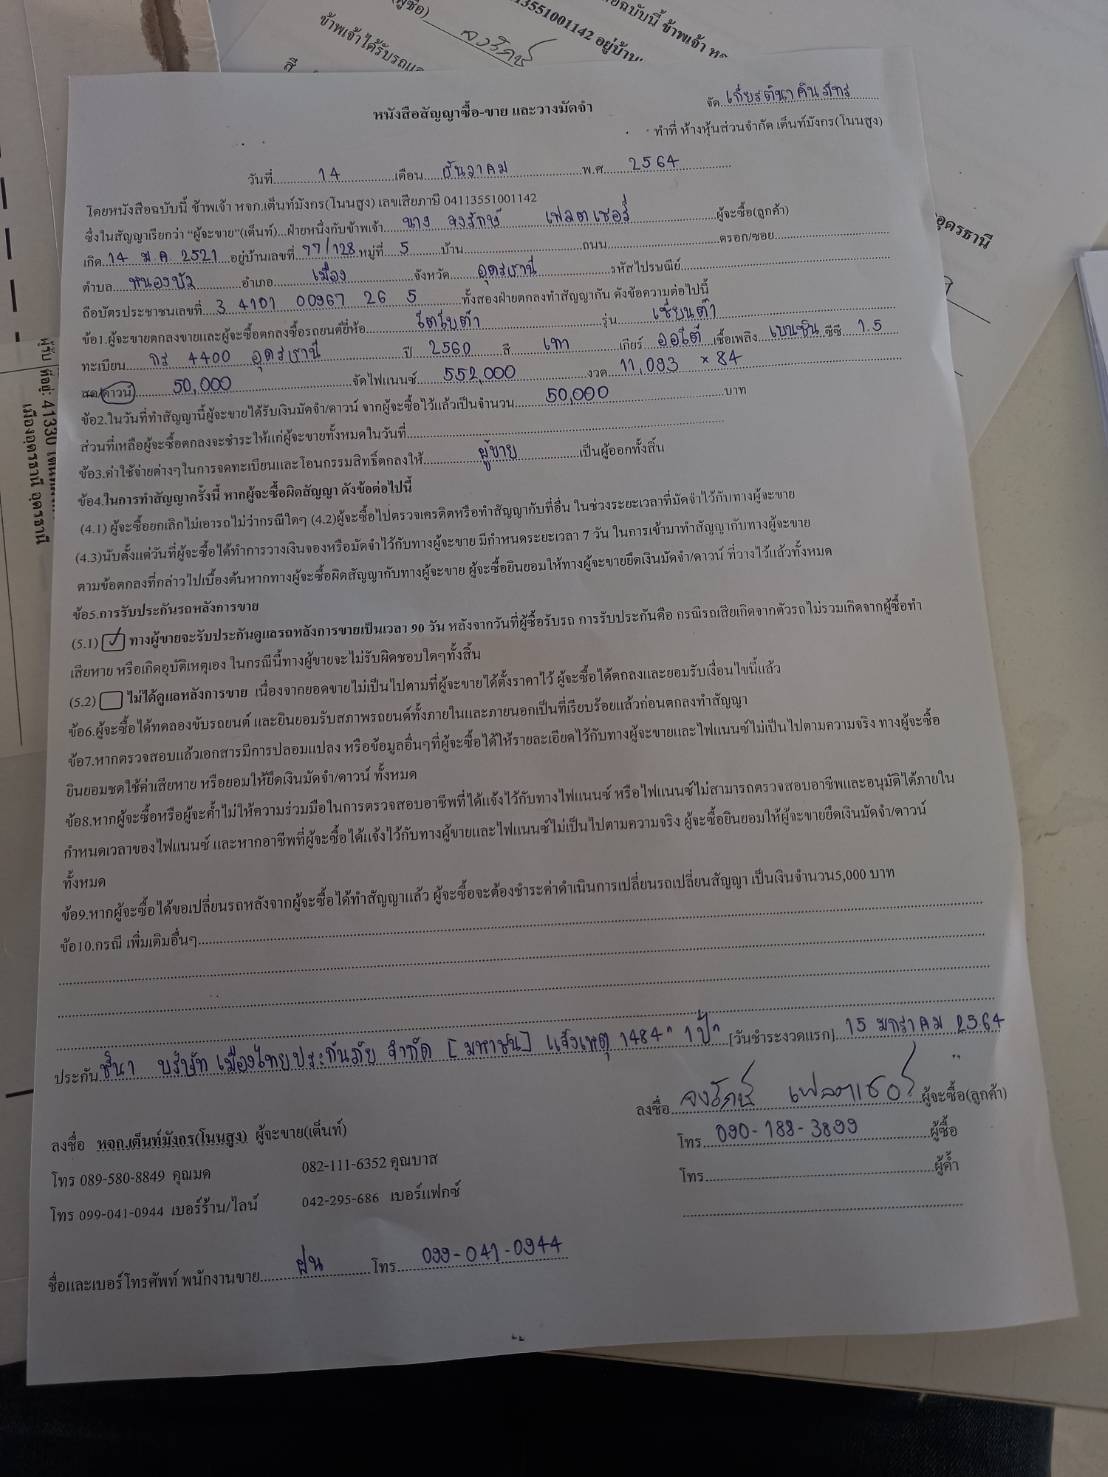 ผู้จะซื้อ)
จงรักษ์
3551001142 อยู่บ้าน
ฉบับนี้ ข้าพเจ้า
ข้าพเจ้าได้รับรถ
สี
อุดรธานี
ที่อยู่: 41330
เมืองอุดรธานี อุดรธานี
จัด เกียรตินาคินภัทร
หนังสือสัญญาซื้อ-ขาย และวางมัดจำ
ทำที่ ห้างหุ้นส่วนจำกัด เต็นท์มังกร(โนนสูง)
วันที่ 14 เดือน ธันวาคม พ.ศ. 2564
โดยหนังสือฉบับนี้ ข้าพเจ้า หจก.เต็นท์มังกร(โนนสูง) เลขเสียภาษี 04113551001142
ซึ่งในสัญญาเรียกว่า "ผู้จะขาย"(เต็นท์)...ฝ่ายหนึ่งกับข้าพเจ้า นาง จงรักษ์ เฟลตเชอร์ ผู้จะซื้อ(ลูกค้า)
เกิด 14 ม.ค 2521 อยู่บ้านเลขที่ 77/128 หมู่ที่ 5 บ้าน ถนน ตรอก/ซอย
ตำบล หนองบัว อำเภอ เมือง จังหวัด อุดรธานี รหัสไปรษณีย์
ถือบัตรประชาชนเลขที่ 3 4101 00967 26 5 ทั้งสองฝ่ายตกลงทำสัญญากัน ดังข้อความต่อไปนี้
ข้อ1.ผู้จะขายตกลงขายและผู้จะซื้อตกลงซื้อรถยนต์ยี่ห้อ โตโยต้า รุ่น เซียนต้า
ทะเบียน กร 4400 อุดรธานี ปี 2560 สี เทา เกียร์ ออโต้ เชื้อเพลิง เบนซิน ซีซี 1.5
ดาวน์ 50,000 จัดไฟแนนซ์ 552,000 งวด 11,093 × 84
ข้อ2.ในวันที่ทำสัญญานี้ผู้จะขายได้รับเงินมัดจำ/ดาวน์ จากผู้จะซื้อไว้แล้วเป็นจำนวน 50,000 บาท
ส่วนที่เหลือผู้จะซื้อตกลงจะชำระให้แก่ผู้จะขายทั้งหมดในวันที่
ข้อ3.ค่าใช้จ่ายต่างๆในการจดทะเบียนและโอนกรรมสิทธิ์ตกลงให้ ผู้ขาย เป็นผู้ออกทั้งสิ้น
ข้อ4.ในการทำสัญญาครั้งนี้ หากผู้จะซื้อผิดสัญญา ดังข้อต่อไปนี้
(4.1) ผู้จะซื้อยกเลิกไม่เอารถไม่ว่ากรณีใดๆ (4.2)ผู้จะซื้อไปตรวจเครดิตหรือทำสัญญากับที่อื่น ในช่วงระยะเวลาที่มัดจำไว้กับทางผู้จะขาย
(4.3)นับตั้งแต่วันที่ผู้จะซื้อได้ทำการวางเงินจองหรือมัดจำไว้กับทางผู้จะขาย มีกำหนดระยะเวลา 7 วัน ในการเข้ามาทำสัญญากับทางผู้จะขาย
ตามข้อตกลงที่กล่าวไปเบื้องต้นหากทางผู้จะซื้อผิดสัญญากับทางผู้จะขาย ผู้จะซื้อยินยอมให้ทางผู้จะขายยึดเงินมัดจำ/ดาวน์ ที่วางไว้แล้วทั้งหมด
ข้อ5.การรับประกันรถหลังการขาย
(5.1) ✓ ทางผู้ขายจะรับประกันดูแลรถหลังการขายเป็นเวลา 90 วัน หลังจากวันที่ผู้ซื้อรับรถ การรับประกันคือ กรณีรถเสียเกิดจากตัวรถ ไม่รวมเกิดจากผู้ซื้อทำ
เสียหาย หรือเกิดอุบัติเหตุเอง ในกรณีนี้ทางผู้ขายจะไม่รับผิดชอบใดๆทั้งสิ้น
(5.2) ไม่ได้ดูแลหลังการขาย เนื่องจากยอดขายไม่เป็นไปตามที่ผู้จะขายได้ตั้งราคาไว้ ผู้จะซื้อได้ตกลงและยอมรับเงื่อนไขนี้แล้ว
ข้อ6.ผู้จะซื้อได้ทดลองขับรถยนต์ และยินยอมรับสภาพรถยนต์ทั้งภายในและภายนอกเป็นที่เรียบร้อยแล้วก่อนตกลงทำสัญญา
ข้อ7.หากตรวจสอบแล้วเอกสารมีการปลอมแปลง หรือข้อมูลอื่นๆที่ผู้จะซื้อได้ให้รายละเอียดไว้กับทางผู้จะขายและไฟแนนซ์ไม่เป็นไปตามความจริง ทางผู้จะซื้อ
ยินยอมชดใช้ค่าเสียหาย หรือยอมให้ยึดเงินมัดจำ/ดาวน์ ทั้งหมด
ข้อ8.หากผู้จะซื้อหรือผู้จะค้ำไม่ให้ความร่วมมือในการตรวจสอบอาชีพที่ได้แจ้งไว้กับทางไฟแนนซ์ หรือไฟแนนซ์ไม่สามารถตรวจสอบอาชีพและอนุมัติได้ภายใน
กำหนดเวลาของไฟแนนซ์ และหากอาชีพที่ผู้จะซื้อได้แจ้งไว้กับทางผู้ขายและไฟแนนซ์ไม่เป็นไปตามความจริง ผู้จะซื้อยินยอมให้ผู้จะขายยึดเงินมัดจำ/ดาวน์
ทั้งหมด
ข้อ9.หากผู้จะซื้อได้ขอเปลี่ยนรถหลังจากผู้จะซื้อได้ทำสัญญาแล้ว ผู้จะซื้อจะต้องชำระค่าดำเนินการเปลี่ยนรถเปลี่ยนสัญญา เป็นเงินจำนวน5,000 บาท
ข้อ10.กรณี เพิ่มเติมอื่นๆ
ประกัน ชั้น1 บริษัท เมืองไทยประกันภัย จำกัด [มหาชน] แจ้งเหตุ 1484" 1ปี" [วันชำระงวดแรก] 15 มกราคม 2564
ลงชื่อ จงรักษ์ เฟลตเชอร์ ผู้จะซื้อ(ลูกค้า)
ลงชื่อ หจก.เต็นท์มังกร(โนนสูง) ผู้จะขาย(เต็นท์)
โทร 090-188-3899 ผู้ซื้อ
โทร 089-580-8849 คุณมด 082-111-6352 คุณปาล
โทร ผู้ค้ำ
โทร 099-041-0944 เบอร์ร้าน/ไลน์ 042-295-686 เบอร์แฟกซ์
ชื่อและเบอร์โทรศัพท์ พนักงานขาย ฝน โทร 099-041-0944